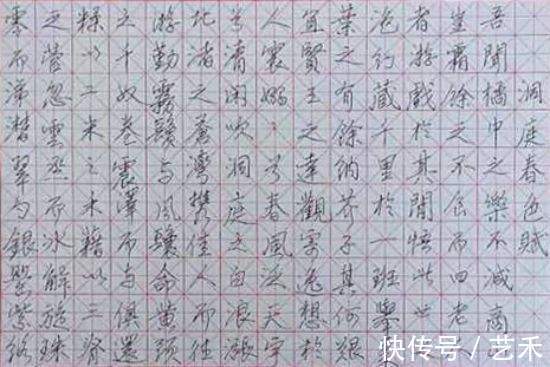 洞庭春色賦
吾聞橘中之樂不減商
豈霜餘之不食而四老
者游戲於其間悟此世
泡幻藏千里於一班舉
葉之有餘納芥子其何艱
宜賢王之達觀寄逸想於
人寰嫋々兮春風泛天宇
兮清閑吹洞庭之白浪漲
北渚之蒼灣攜佳人而往
游勤霧鬢与風鬟命黄頭
之千奴卷震澤而与俱還
糅以二米之禾藉以三脊
之菅忽雲烝而冰解旋珠
零而涕潸翠勺銀罌紫絡
快传号 / 艺禾